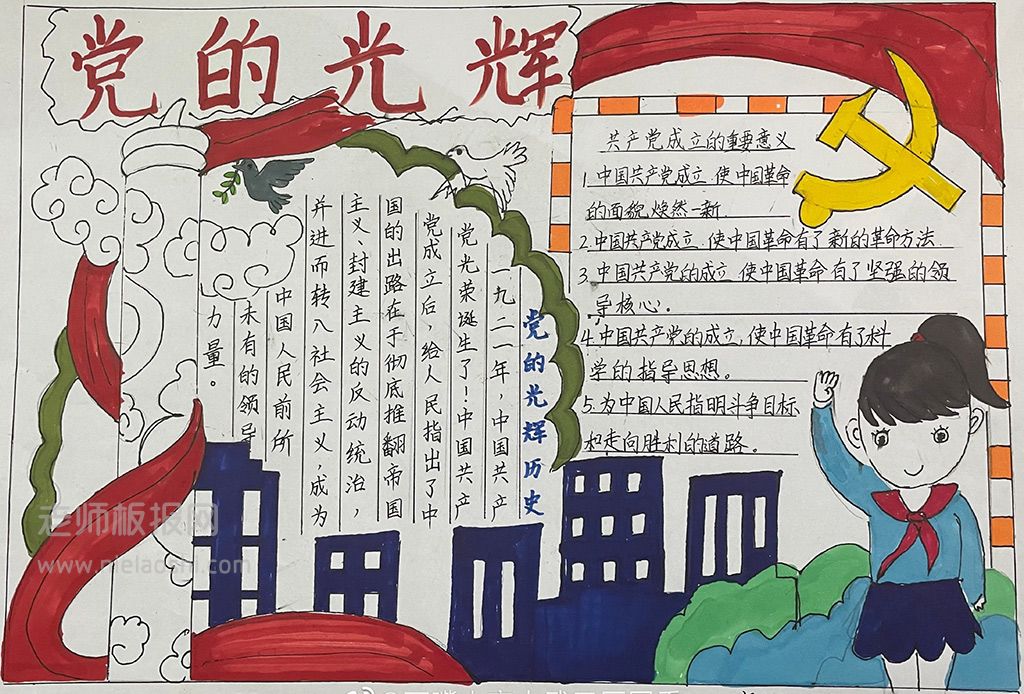 党的光辉
党的光辉历史
一九二一年,中国共产
党光荣诞生了!中国共产
党成立后,给人民指出了中
国的出路在于彻底推翻帝国
主义、封建主义的反动统治,
并进而转入社会主义,成为
中国人民前所
未有的领导
力量。
共产党成立的重要意义
1.中国共产党成立.使中国革命
的面貌焕然一新.
2.中国共产党成立.使中国革命有了新的革命方法.
3.中国共产党的成立.使中国革命有了坚强的领
导核心;
4.中国共产党的成立,使中国革命有了科
学的指导思想。
5.为中国人民指明斗争目标
和走向胜利的道路。
老师板报网
www.meladani.com